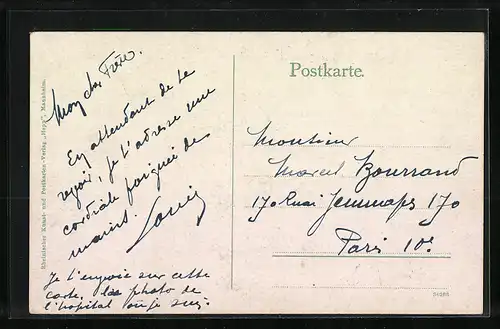 Mon cher Frère.
En attendant de te
revoir. je t'adresse une
cordiale poignée de
mains. Louis
Je t'envoie sur cette
carte. la photo de
l'hopital ou je suis.
Rheinischer Kunst- und Postkarten-Verlag „Hepp", Mannheim.
Postkarte.
Monsieur
Marcel Bourrand
170 Quai Jemmapes 170
Paris 10e